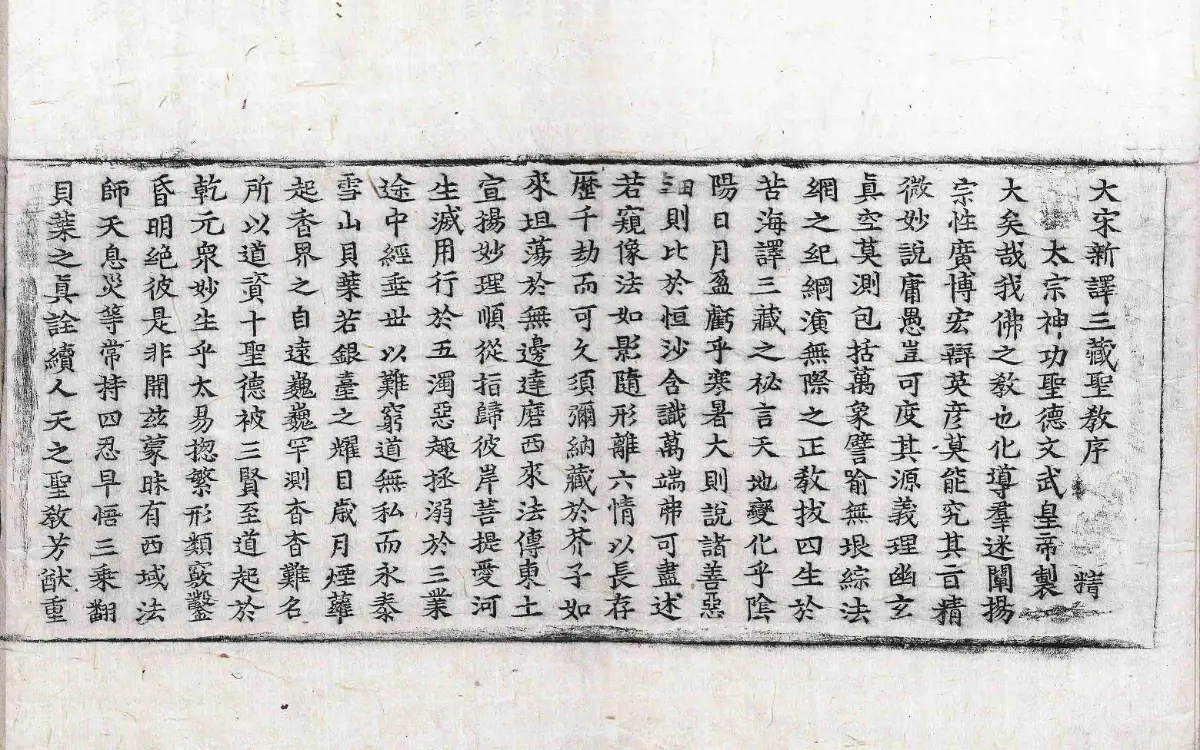 大宋新譯三藏聖教序 精
太宗神功聖德文武皇帝製
大矣哉我佛之教也化導羣迷闡揚
宗性廣博宏辯英彦莫能究其旨精
微妙說庸愚豈可度其源義理幽玄
真空莫測包括萬象譬喻無垠綜法
網之紀綱演無際之正教拔四生於
苦海譯三藏之秘言天地變化乎陰
陽日月盈虧乎寒暑大則說諸善惡
細則比於恒沙含識萬端弗可盡述
若窺像法如影隨形離六情以長存
歷千劫而可久須彌納藏於芥子如
來坦蕩於無邊達磨西來法傳東土
宣揚妙理順從指歸彼岸菩提愛河
生滅用行於五濁惡趣拯溺於三業
途中經垂世以難窮道無私而永泰
雪山貝葉若銀臺之耀日歲月煙蘿
起香界之自遠巍巍罕測杳杳難名
所以道資十聖德被三賢至道起於
乾元衆妙生乎太易揔繁形類竅鑿
昏明絕彼是非開茲蒙昧有西域法
師天息災等常持四忍早悟三乘翻
貝葉之真詮續人天之聖教芳猷重